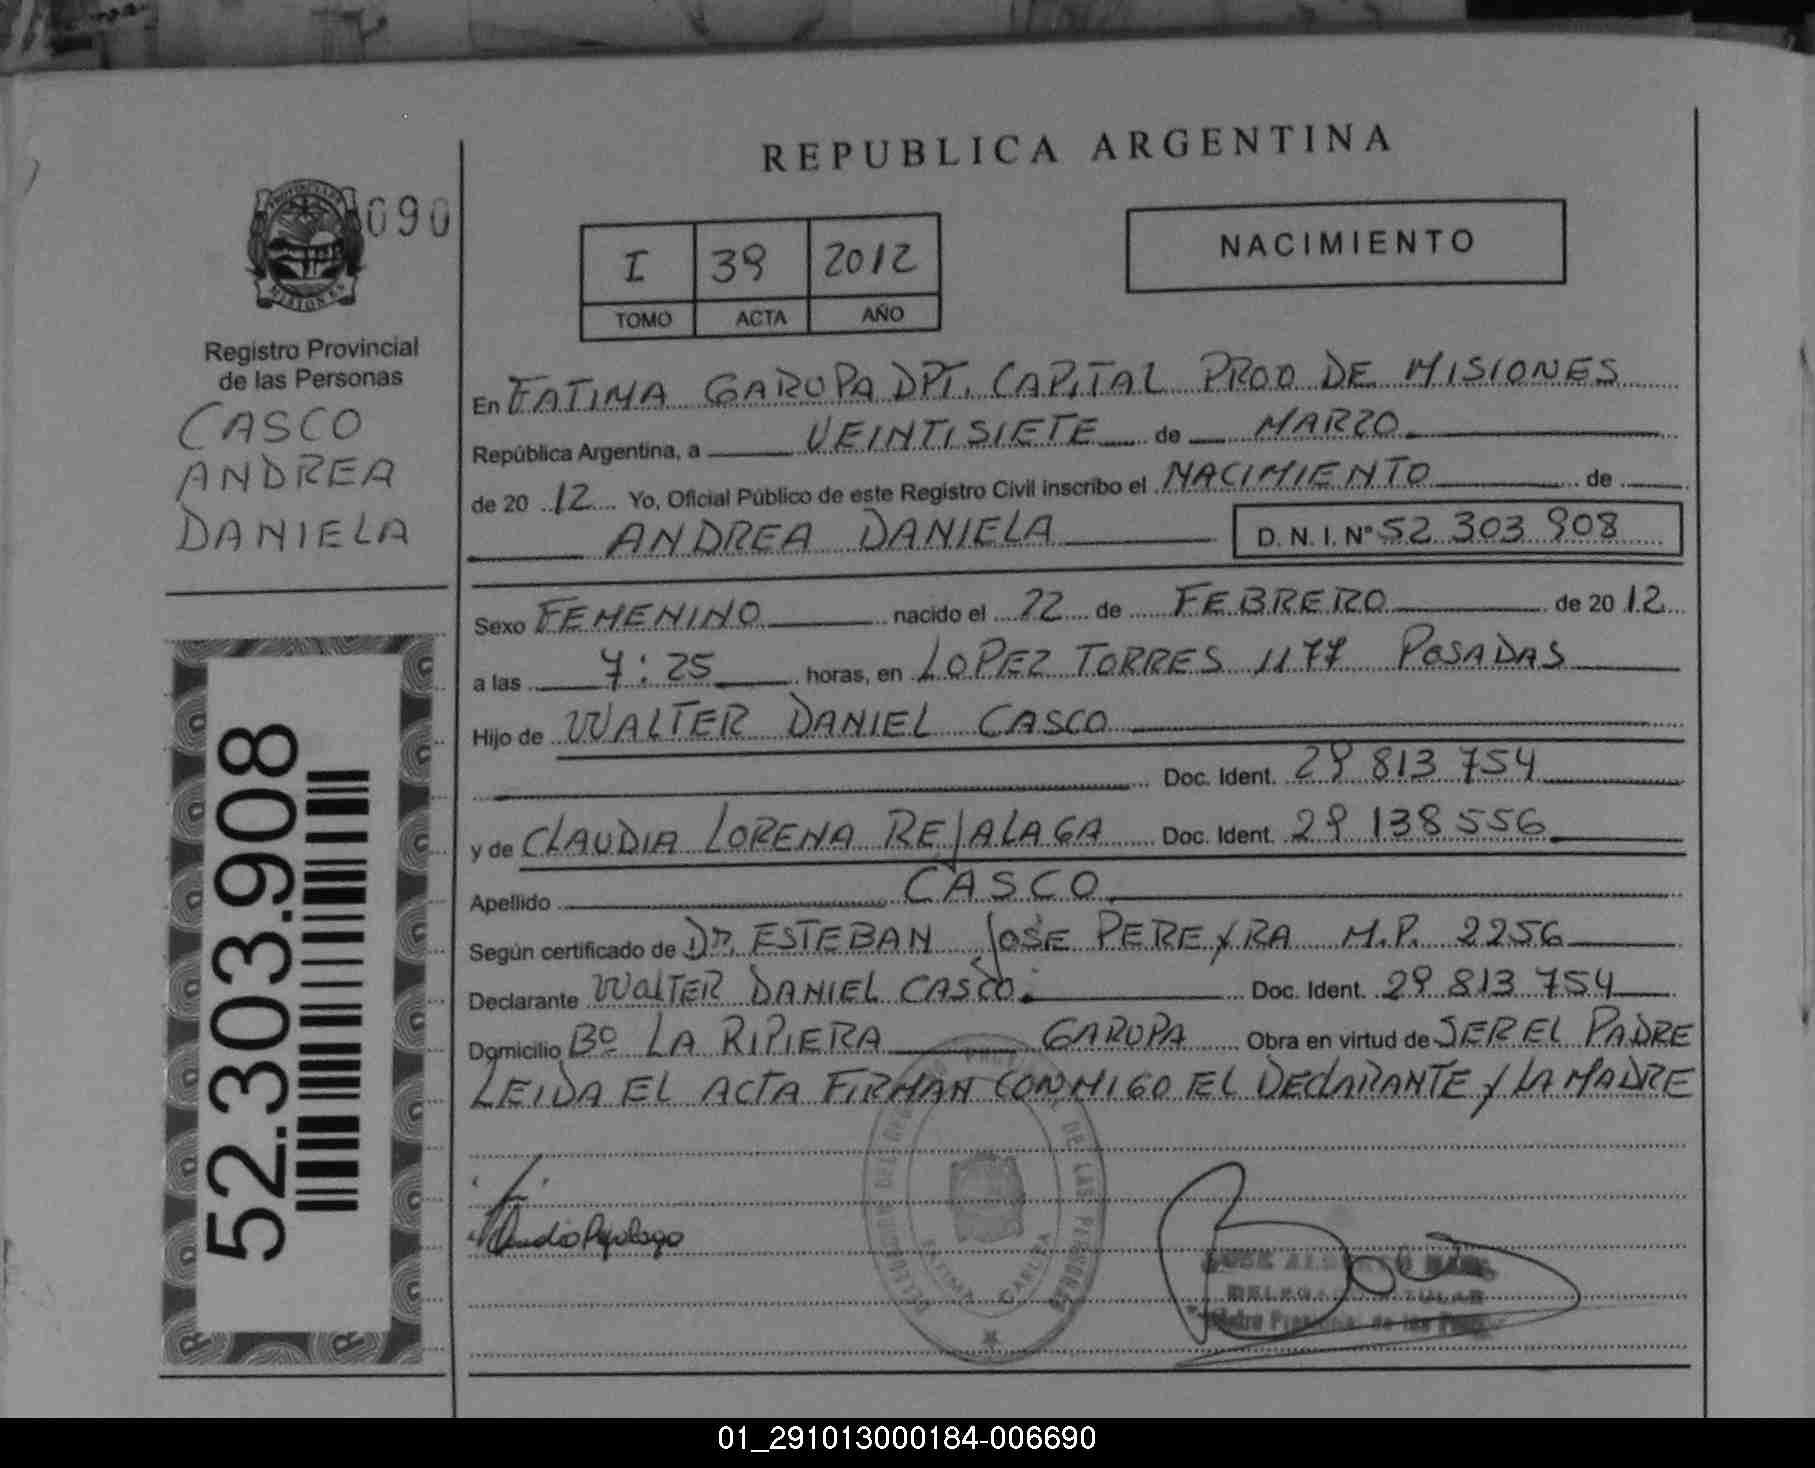 REPUBLICA ARGENTINA
PROVINCIA DE
MISIONES
090
I 39 2012
TOMO ACTA AÑO
NACIMIENTO
Registro Provincial
de las Personas
CASCO
ANDREA
DANIELA
En FATIMA GARUPA DPT. CAPITAL PROV DE MISIONES
República Argentina, a VEINTISIETE de MARZO
de 20 12 Yo, Oficial Público de este Registro Civil inscribo el NACIMIENTO de
ANDREA DANIELA D. N. I. N° 52 303 908
Sexo FEMENINO nacido el 22 de FEBRERO de 20 12
a las 7:25 horas, en LOPEZ TORRES 1177 POSADAS
Hijo de WALTER DANIEL CASCO
Doc. Ident. 29 813 754
y de CLAUDIA LORENA REJALAGA Doc. Ident. 29 138 556
Apellido CASCO
Según certificado de Dr. ESTEBAN JOSE PEREYRA M.P. 2256
Declarante WALTER DANIEL CASCO. Doc. Ident. 29 813 754
Domicilio Bº LA RIPIERA GARUPA Obra en virtud de SER EL PADRE
LEIDA EL ACTA FIRMAN CONMIGO EL DECLARANTE Y LA MADRE
52.303.908
DE LAS PERSONAS
FATIMA GARUPA
01_291013000184-006690